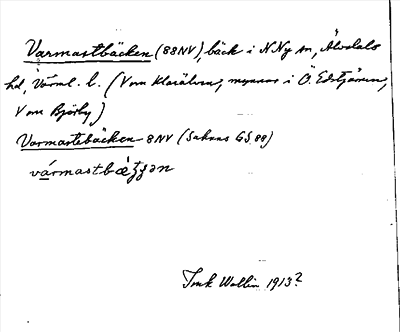 Varmastbäcken (88NV), bäck i NNy sn, Älvdals
hd, Värml. l. (V om Klarälven, mynnar i Ö. Edstjärnen,
V om Björby)
Varmastebäcken 8NV (Saknas GS 88)
vármastbæ̀ʒʒən
Tink Wallin 1913?